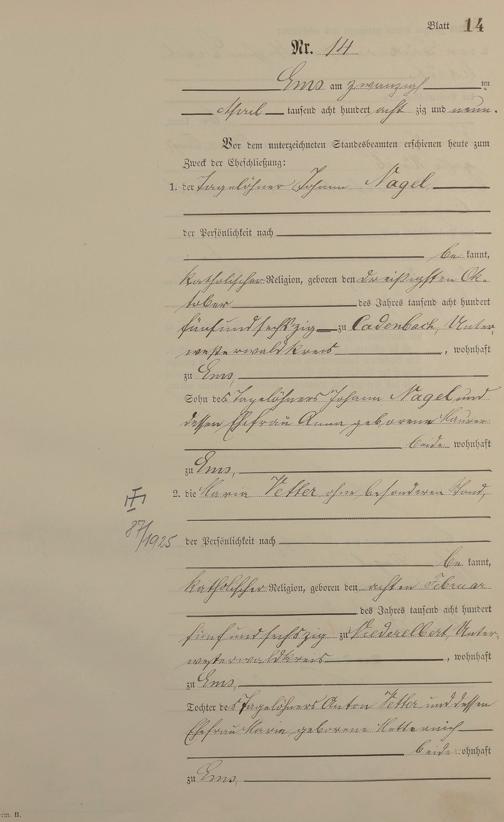 Blatt 14
Nr. 14
Ems am zwanzigsten
April tausend acht hundert acht zig und neun.
Vor dem unterzeichneten Standesbeamten erschienen heute zum
Zweck der Eheschließung:
1. der Tagelöhner Johann Nagel
der Persönlichkeit nach
be kannt,
katholischer Religion, geboren den dreißigsten Ok-
tober des Jahres tausend acht hundert
fünfundsechszig zu Cadenbach, Unter-
westerwaldkreis, wohnhaft
zu Ems,
Sohn des Tagelöhners Johann Nagel und
dessen Ehefrau Anna geborene Maurer
beide wohnhaft
zu Ems,
2. die Maria Vetter ohne besonderen Stand,
87/1925
der Persönlichkeit nach
be kannt,
katholischer Religion, geboren den achten Februar
des Jahres tausend acht hundert
fünfundsechszig zu Niederelbert, Unter-
westerwaldkreis, wohnhaft
zu Ems,
Tochter des Tagelöhners Anton Vetter und dessen
Ehefrau Maria geborene Metternich
beide wohnhaft
zu Ems,